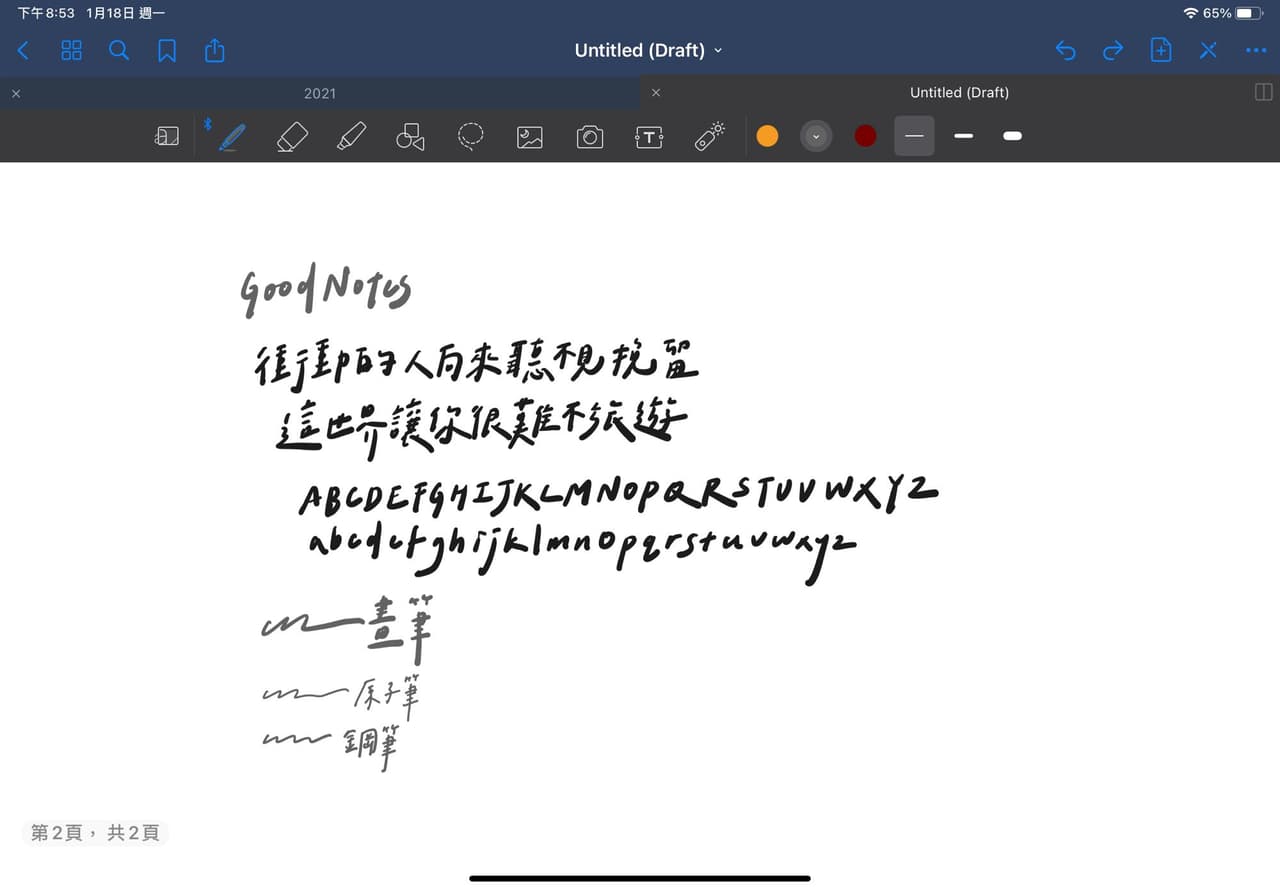 下午8:53 1月18日 週一
65%
Untitled (Draft)
2021
Untitled (Draft)
T
GoodNotes
衝的人向來聽不見挽留
這世界讓你很難不旅遊
ABCDEFGHIJKLMNOPQRSTUVWXYZ
abcdefghijklmnopqrstuvwxyz
畫筆
原子筆
鋼筆
第2頁, 共2頁